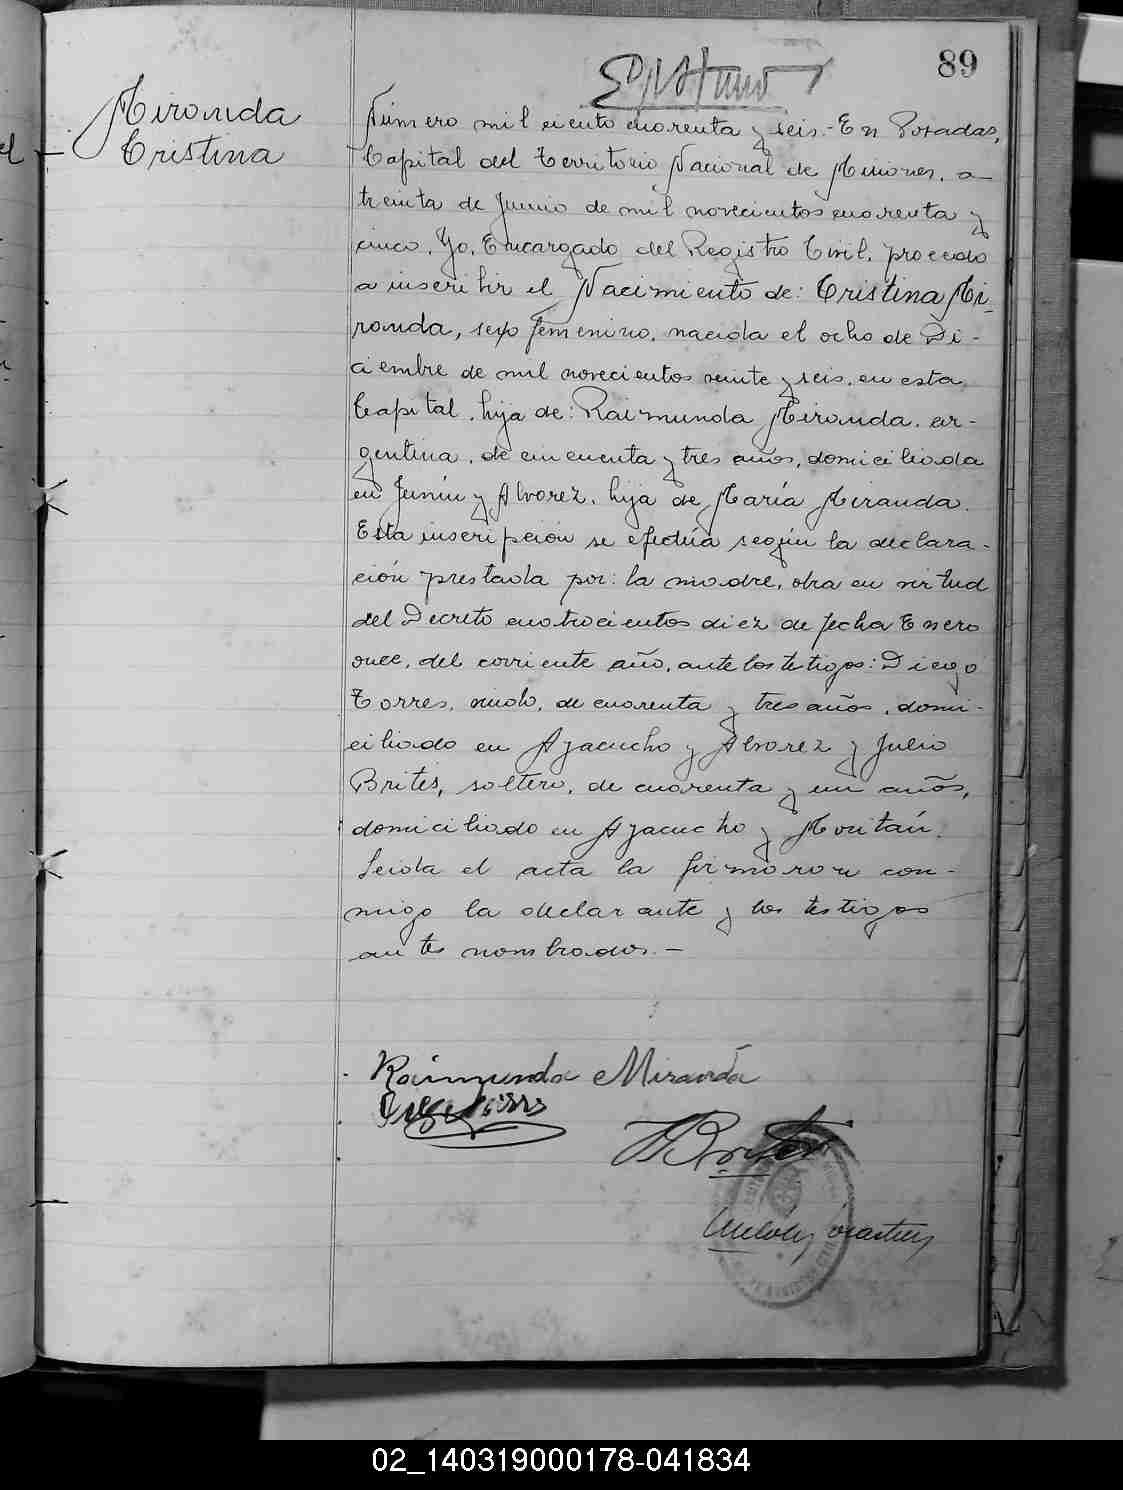 89
Miranda
Cristina
Número mil ciento cuarenta y seis.- En Posadas,
Capital del Territorio Nacional de Misiones, a
treinta de Junio de mil novecientos cuarenta y
cinco. Yo, Encargado del Registro Civil, procedo
a inscribir el Nacimiento de: Cristina Mi-
randa, sexo femenino, nacida el ocho de Di-
ciembre de mil novecientos veinte y seis, en esta
Capital, hija de: Raimunda Miranda, ar-
gentina, de cincuenta y tres años, domiciliada
en Junín y Alvarez, hija de María Miranda.
Esta inscripción se efectúa según la declara-
ción prestada por: la madre, obra en virtud
del Decreto cuatrocientos diez de fecha Enero
once, del corriente año, ante los testigos: Diego
Torres, viudo, de cuarenta y tres años, domi-
ciliado en Ayacucho y Alvarez y Julio
Brites, soltero, de cuarenta y un años,
domiciliado en Ayacucho y Moritán.
Leida el acta la firmaron con-
migo la declarante y los testigos
antes nombrados.-
Raimunda Miranda
Brites
02_140319000178-041834